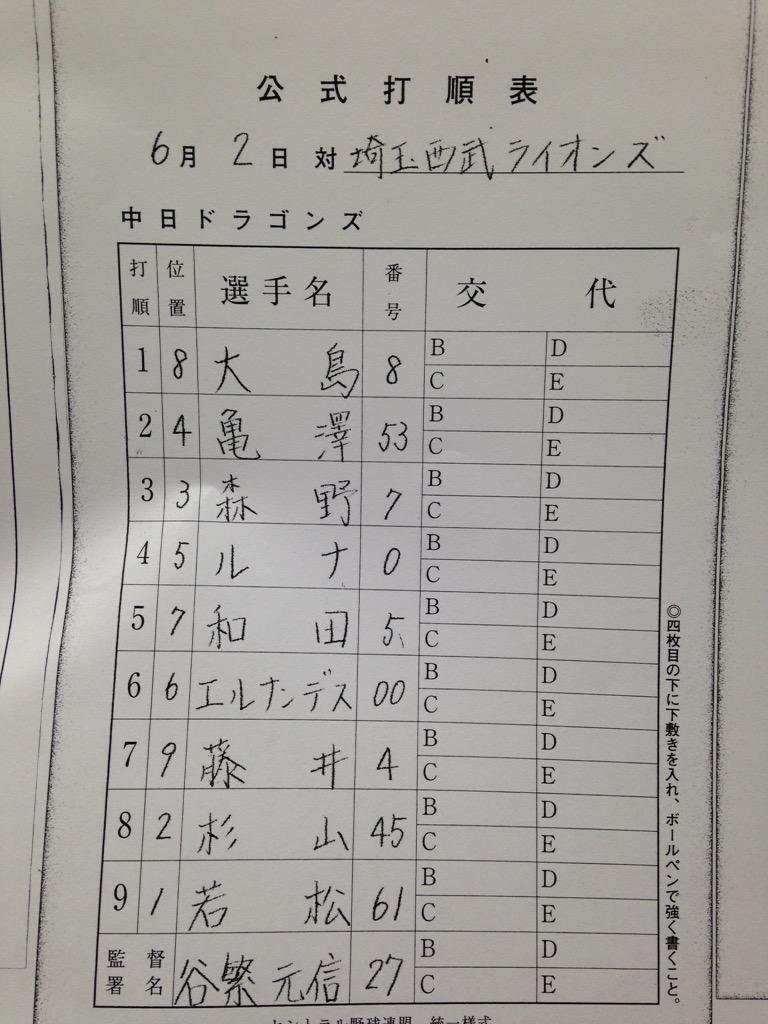 公式打順表
6月2日対埼玉西武ライオンズ
中日ドラゴンズ
打順 位置 選手名 番号 交代
1 8 大島 8 B D
C E
2 4 亀澤 53 B D
C E
3 3 森野 7 B D
C E
4 5 ルナ 0 B D
C E
5 7 和田 5 B D
C E
6 6 エルナンデス 00 B D
C E
7 9 藤井 4 B D
C E
8 2 杉山 45 B D
C E
9 1 若松 61 B D
C E
監督署名 谷繁元信 27 B D
C E
◎四枚目の下に下敷きを入れ、ボールペンで強く書くこと。
セントラル野球連盟 統一様式